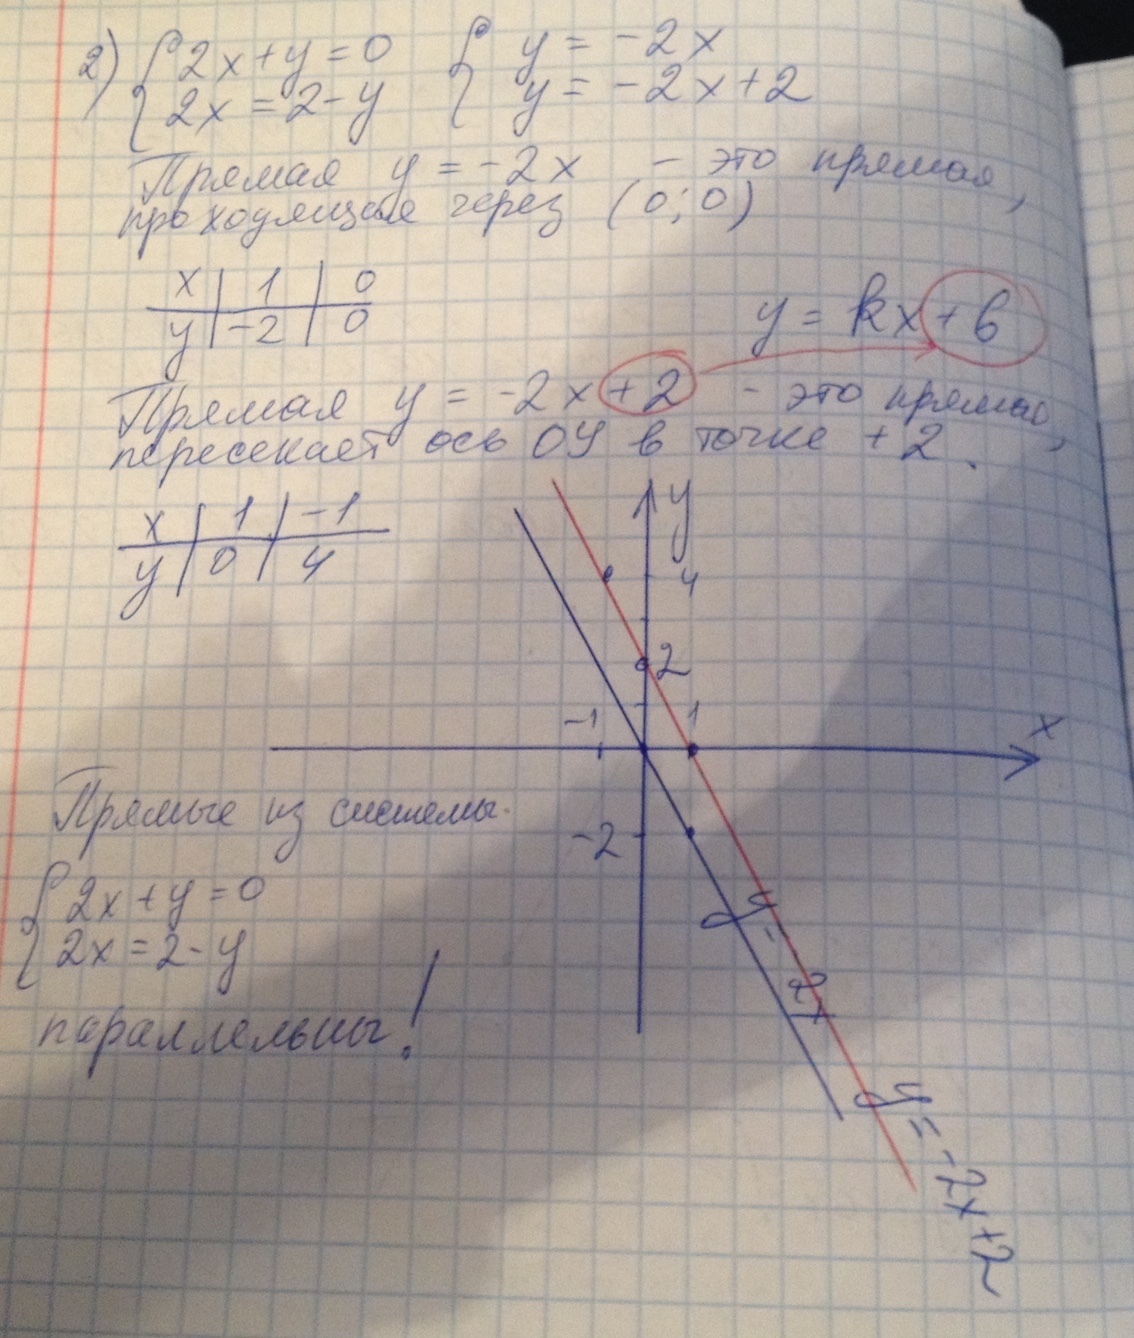 2) { 2x+y=0 { y = -2x
2x = 2-y y = -2x+2
Прямая y = -2x - это прямая,
проходящая через (0;0)
x | 1 | 0
y | -2 | 0
y = kx+b
Прямая y = -2x+2 - это прямая,
пересекает ось ОУ в точке +2.
x | 1 | -1
y | 0 | 4
y
4
2
-1 1
x
-2
y = -2x
y = -2x+2
Прямые из системы
{ 2x+y=0
2x=2-y
параллельны!